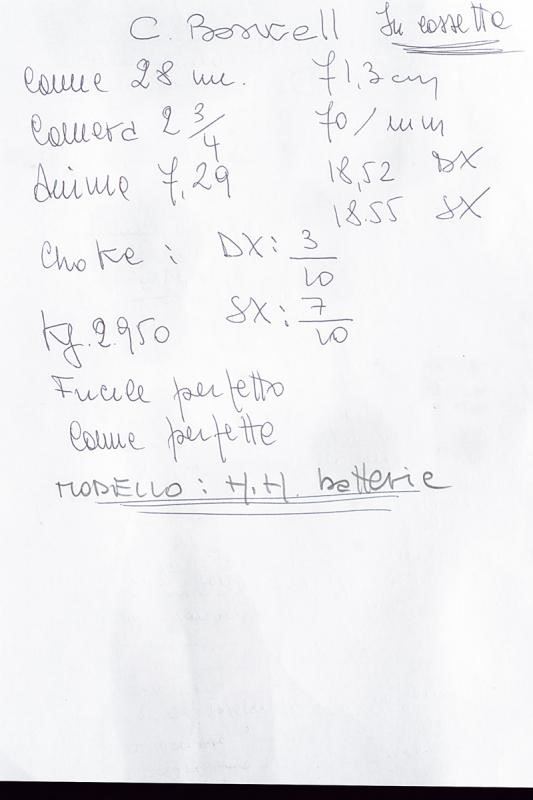 C. Boswell In cassetta
Canne 28 in. 71,3 cm
Camera 2 3/4 70/mm
Anime 7,29 18,52 DX
18.55 SX
Choke : DX: 3/10
SX: 7/10
Kg. 2.950
Fucile perfetto
Canne perfette
MODELLO : H.H. batterie